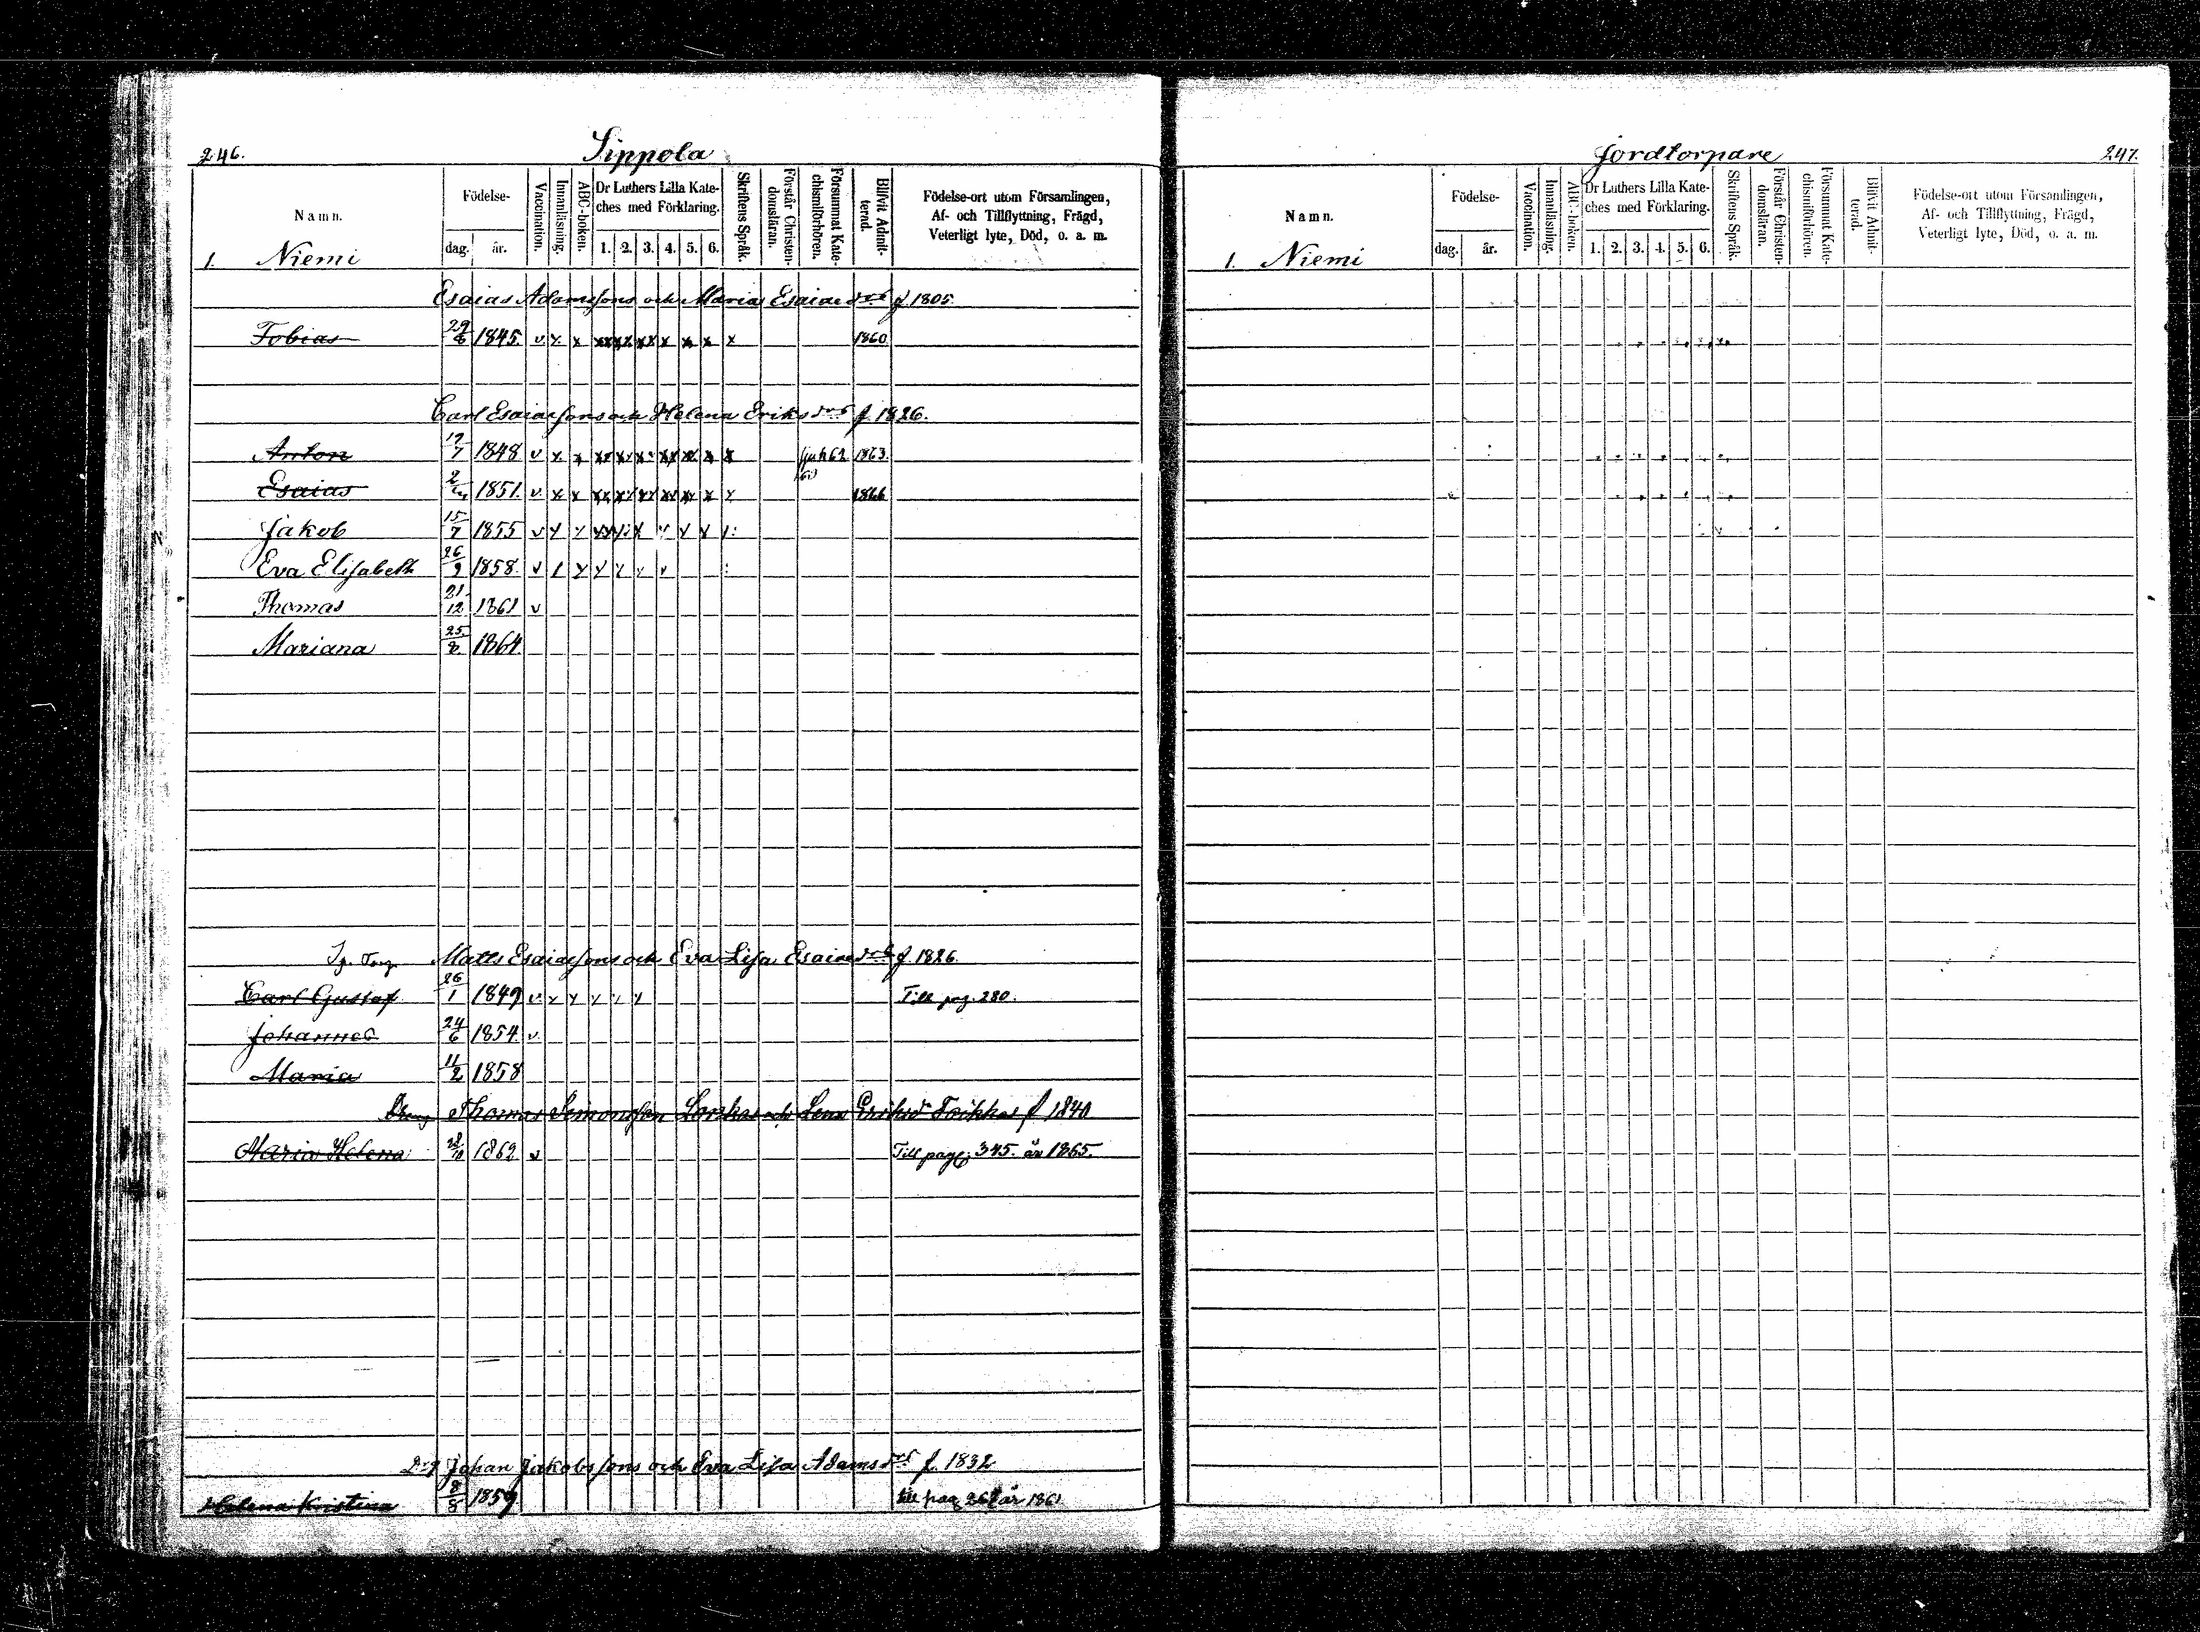 246.
Sippola
Namn.
Födelse-
dag. år.
Vaccination.
Innanläsning.
ABC-boken.
Dr Luthers Lilla Kate-
ches med Förklaring.
1. 2. 3. 4. 5. 6.
Skriftens Språk.
Förstår Christen-
domsläran.
Försummat Kate-
chismiförhören.
Blifvit Admit-
terad.
Födelse-ort utom Församlingen,
Af- och Tillflyttning, Frägd,
Veterligt lyte, Död, o. a. m.
1. Niemi
Esaias Adamssons och Maria Esaiaedr f 1805.
Tobias 29/6 1845. v x x xx xx xx x x x x 1860
Carl Esaiassons och Helena Eriksdr f 1826.
Anton 17/7 1848 v x x xx xx x xx xx x x sjuk 62 1863.
Esaias 1851. v x x xx xx xx xx xx x x 1866
Jakob 15/7 1855 v
Eva Elisabeth 26/9 1858. v
Thomas 21/12 1861 v
Mariana 25/8 1864.
Matts Esaiassons och Eva Lisa Esaiaedr f 1826.
Carl Gustaf 26/1 1849 v x x x x x Till pag. 280.
Johannes 24/6 1854. v
Maria 11/2 1858
Dreng Thomas Simonsson och Lena Eriksdr f 1840
Maria Helena 28/10 1862 v Till pag. 345. år 1865.
Drg Johan Jakobssons och Eva Lisa Adamsdr f. 1832
Helena Kristina 8/8 1859. till pag 267 år 1861
Jordtorpare
247.
Namn.
Födelse-
dag. år.
Vaccination.
Innanläsning.
ABC-boken.
Dr Luthers Lilla Kate-
ches med Förklaring.
1. 2. 3. 4. 5. 6.
Skriftens Språk.
Förstår Christen-
domsläran.
Försummat Kate-
chismiförhören.
Blifvit Admit-
terad.
Födelse-ort utom Församlingen,
Af- och Tillflyttning, Frägd,
Veterligt lyte, Död, o. a. m.
1. Niemi